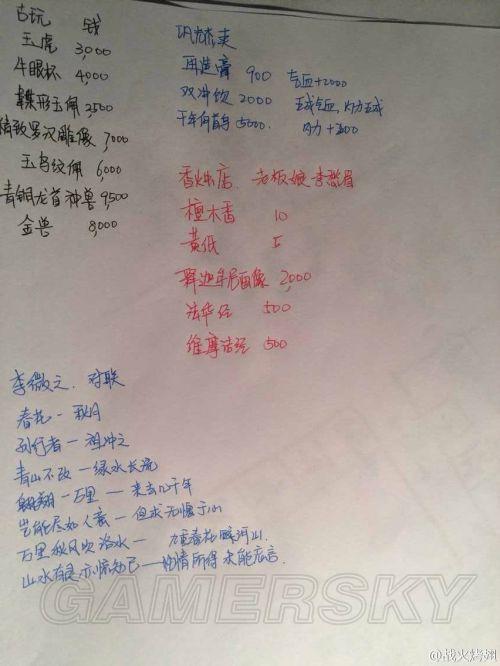 古玩 钱
玉虎 3,000
牛眼杯 4,000
蝶形玉佩 2,500
精致罗汉雕像 7,000
玉鸟纹佩 6,000
青铜龙首神兽 9,500
金兽 8,000
再造膏 900 气血+2000
双冲饮 2000 五成气血,内力五成
千年何首乌 5000. 内力+
香烛店. 老板娘 李愁眉
檀木香 10
黄纸 5
释迦牟尼画像 2,000
法华经 500
维摩诘经 500
李微之. 对联
春花 — 秋月
孙行者 — 祖冲之
青山不改 — 绿水长流
翱翔一万里 — 来去几千年
岂能尽如人意 — 但求无愧于心
万里秋风吹洛水 — 春花映河山.
山水有灵亦惊知己 — 性情所得未能忘言.
GAMERSKY
@战火烤翅